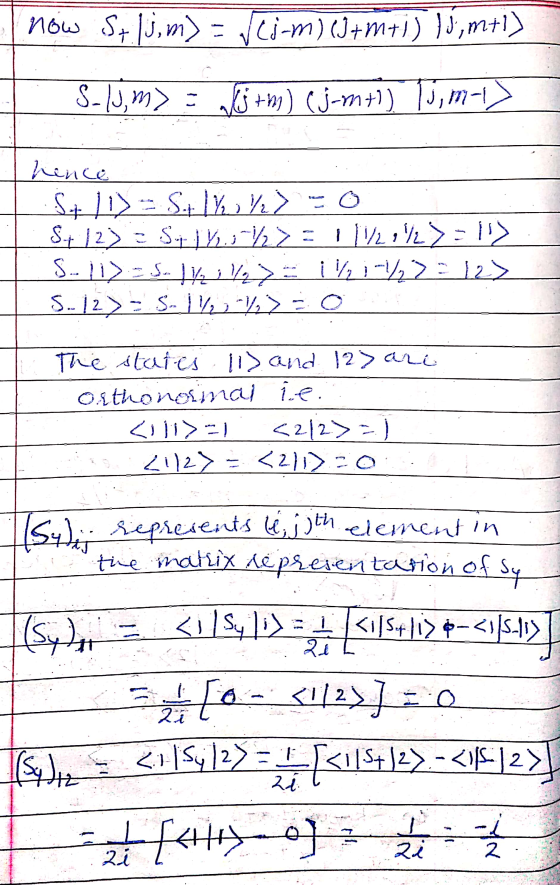 now S₊|j,m> = √(j-m)(j+m+1) |j,m+1>
S₋|j,m> = √(j+m)(j-m+1) |j,m-1>
hence
S₊|1> = S₊|½,½> = 0
S₊|2> = S₊|½,-½> = 1|½,½> = |1>
S₋|1> = S₋|½,½> = |½,-½> = |2>
S₋|2> = S₋|½,-½> = 0
The states |1> and |2> are
orthonormal i.e.
<1|1> = 1 <2|2> = 1
<1|2> = <2|1> = 0
(Sy)ij represents (i,j)th element in
the matrix representation of Sy
(Sy)11 = <1|Sy|1> = 1/2i [<1|S₊|1> - <1|S₋|1>]
= 1/2i [0 - <1|2>] = 0
(Sy)12 = <1|Sy|2> = 1/2i [<1|S₊|2> - <1|S₋|2>]
= 1/2i [<1|1> - 0] = 1/2i = -i/2